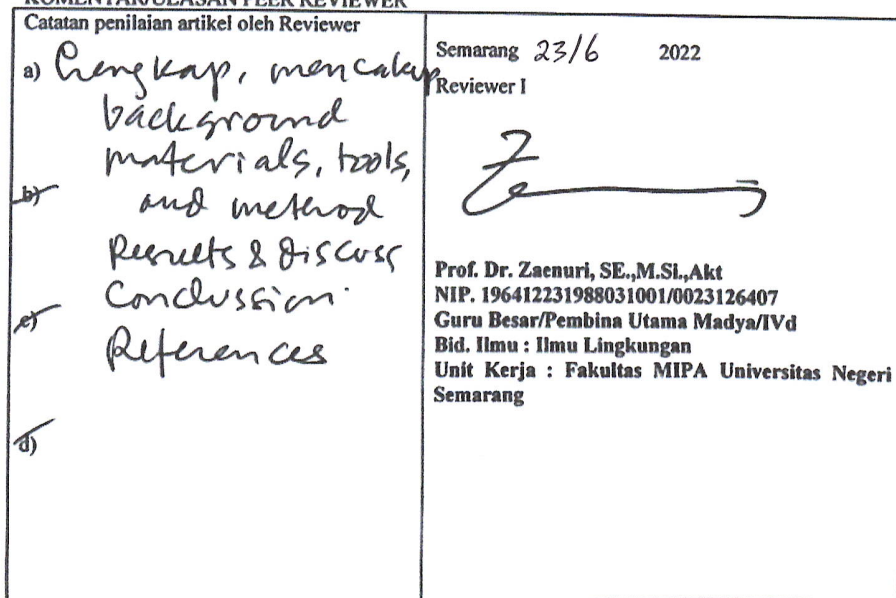 KOMENTAR/ULASAN PEER REVIEWER
Catatan penilaian artikel oleh Reviewer
a) Lengkap, mencakup
background
materials, tools,
b)
and method
Results & Discuss
Conclussion
c)
References
d)
Semarang 23/6 2022
Reviewer I
Prof. Dr. Zaenuri, SE.,M.Si.,Akt
NIP. 196412231988031001/0023126407
Guru Besar/Pembina Utama Madya/IVd
Bid. Ilmu : Ilmu Lingkungan
Unit Kerja : Fakultas MIPA Universitas Negeri
Semarang